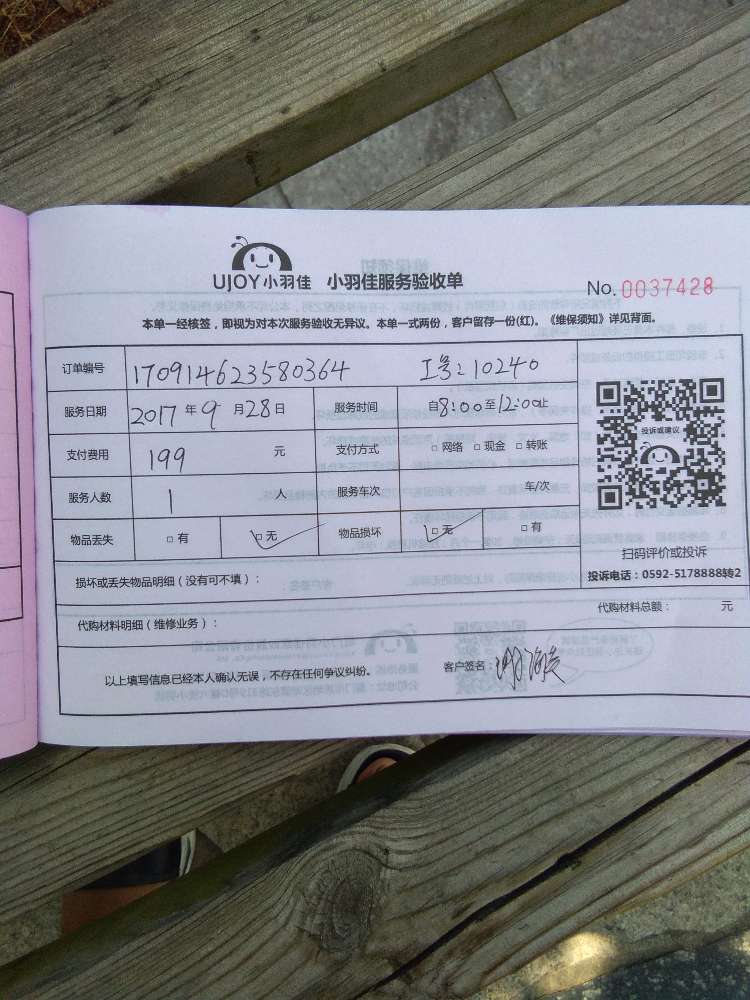 UJOY小羽佳 小羽佳服务验收单
No. 0037428
本单一经核签，即视为对本次服务验收无异议。本单一式两份，客户留存一份(红)。《维保须知》详见背面。
订单编号 170914623580364 工号：10240
服务日期 2017年9月28日 服务时间 自8:00至12:00止
投诉或建议
支付费用 199 元 支付方式 □网络 □现金 □转账
服务人数 1 人 服务车次 车/次
物品丢失 □有 □无 物品损坏 □无 □有
扫码评价或投诉
投诉电话：0592-5178888转2
损坏或丢失物品明细（没有可不填）：
代购材料总额： 元
代购材料明细（维修业务）：
以上填写信息已经本人确认无误，不存在任何争议纠纷。 客户签名：